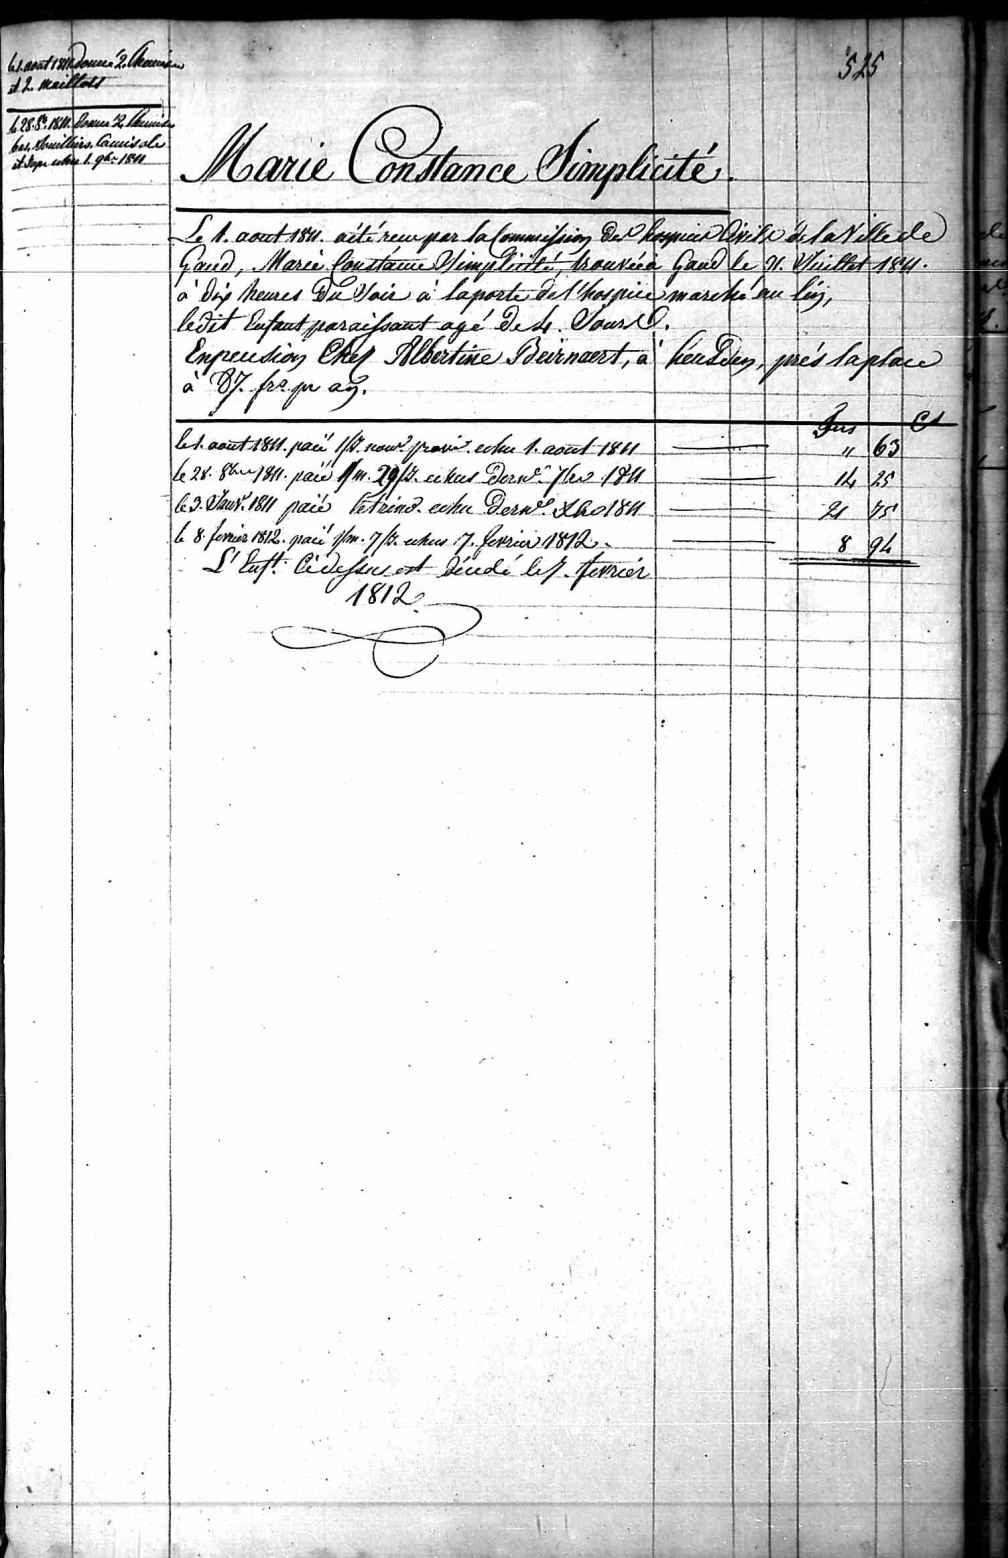 525
le 1. aout 1811 donné 2. Chemises
et 2. maillots
le 28. 8bre 1811. Donné 2. Chemises
bas, Souilliers, Camisole
et Jupe echu 1. 9bre 1811
Marie Constance Simplicité.
Le 1. aout 1811. aété recu par la Commission Des hospices Civils de la Ville de
Gand, Marie Constance Simplicité, trouvée à Gand le 31. Juillet 1811.
à dix heures Du Soir à laporte de l'hospice marché au lin,
ledit Enfant paraissant agé De 4. Jours.
Enpension Chez Albertine Beirnaert, à heusden, prés laplace
à 87. frs. pr an.
Frs Cs
le 1. aout 1811. paié 1/J. nouv. echu 1. aout 1811 — " 63
le 28. 8bre 1811. paié 1/m. 29/J. echus Dernr. 7bre 1811 — 14 25
le 3. Janvr. 1811 paié le trime. echu Dernr. Xbre 1811 — 21 75
le 8. fevrier 1812. paié 1/m. 7/J. echus 7. fevrier 1812. — 8 94
L'Enft. Cidessus est Décédé le 7. fevrier
1812